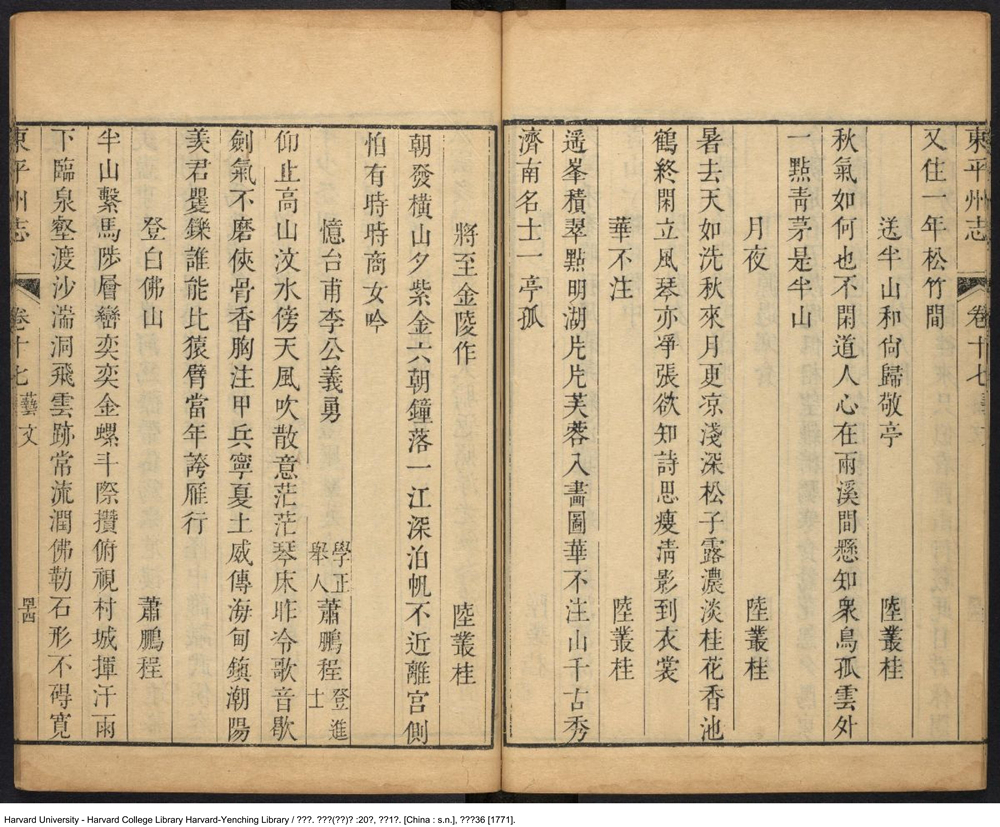 東平州志 卷十七
又住一年松竹間
送半山和尙歸敬亭 陸叢桂
秋氣如何也不閑道人心在兩溪間懸知衆鳥孤雲外
一點靑茅是半山
月夜 陸叢桂
暑去天如洗秋來月更凉淺深松子露濃淡桂花香池
鶴終閑立風琴亦凈張欲知詩思瘦淸影到衣裳
華不注 陸叢桂
遥峯積翠點明湖片片芙蓉入畵圖華不注山千古秀
濟南名士一亭孤
將至金陵作 陸叢桂
朝發橫山夕紫金六朝鐘落一江深泊帆不近離宫側
怕有時時商女吟
憶台甫李公義勇 學正舉人蕭鵬程登進士
仰止高山汶水傍天風吹散意茫茫琴床昨冷歌音歇
劍氣不磨俠骨香胸注甲兵寧夏土威傳海甸鎭潮陽
羨君矍鑠誰能比猿臂當年誇雁行
登白佛山 蕭鵬程
半山繫馬陟層巒奕奕金螺斗際攢俯視村城揮汗雨
下臨泉壑渡沙湍洞飛雲跡常流潤佛勒石形不碍寛
東平州志 卷十七 藝文 四十四
Harvard University - Harvard College Library Harvard-Yenching Library / ???. ???(??)? :20?, ??1?. [China : s.n.], ???36 [1771].